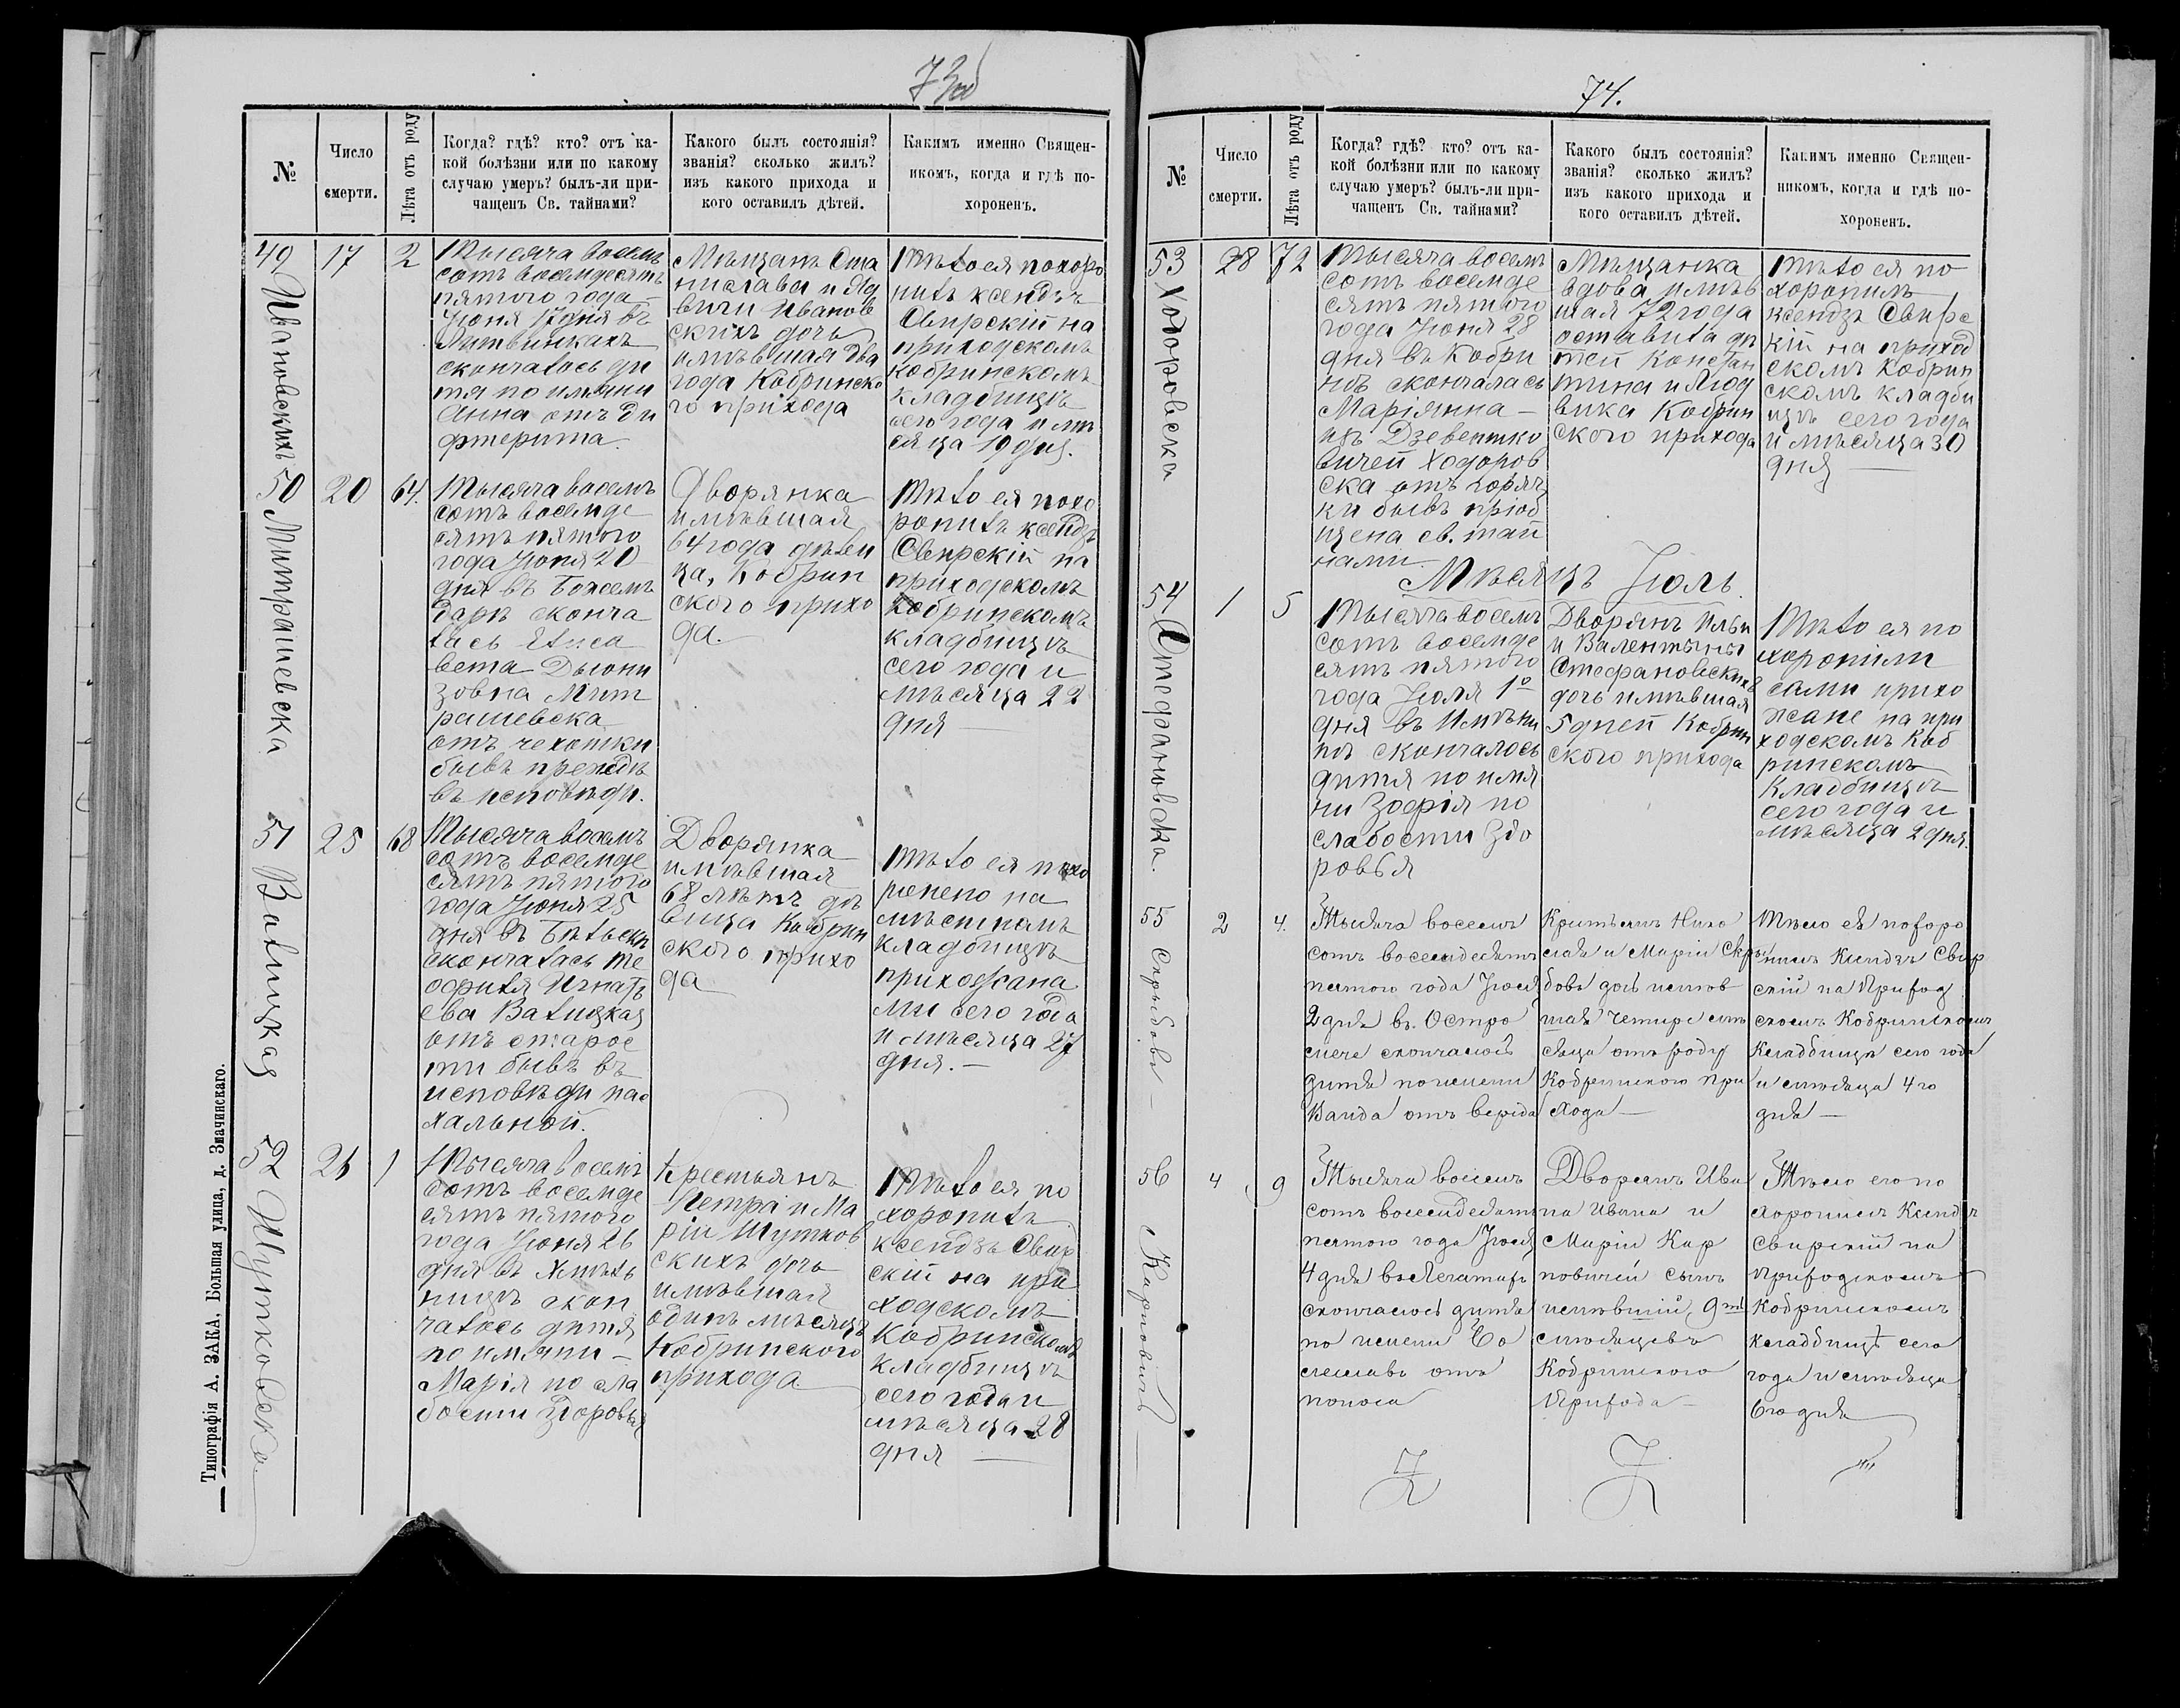 73об
№
Число
смерти.
Лѣта отъ роду
Когда? гдѣ? кто? отъ ка-
кой болѣзни или по какому
случаю умеръ? былъ-ли при-
чащенъ Св. тайнами?
Какого былъ состоянія?
званія? сколько жилъ?
изъ какого прихода и
кого оставилъ дѣтей.
Какимъ именно Священ-
никомъ, когда и гдѣ по-
хороненъ.
49
Ивановскихъ
17
2
Тысяча восемь
сотъ восемдесятъ
пятого года
Іюня 17 дня въ
Литвинкахъ
скончалось ди
тя по имяни
Анна отъ ди
фтерита.
Мѣщанъ Ста
нислава и Яд
виги Иванов
скихъ дочь
имѣвшая два
года Кобринско
го прихода
Тѣло ея похоро
нилъ ксендзъ
Свирскій на
приходскомъ
Кобринскомъ
кладбищѣ
сего года и мѣ
сяца 19 дня.
50
Митрашевска
20
64.
Тысяча восемь
сотъ восемде
сятъ пятого
года Іюня 20
дня въ Божемъ
дарѣ сконча
лась Елиса
вета Дыони
зовна Мит
рашевска
отъ чехотки
бывъ прежде
въ исповѣди.
Дворянка
имѣвшая
64 года дѣви
ца, Кобрин
ского прихо
да.
Тѣло ея похо
ронилъ ксендзъ
Свирскій на
приходскомъ
Кобринскомъ
кладбищѣ
сего года и
мѣсяца 22
дня
51
Валицкая
25
68
Тысяча восемь
сотъ восемде
сятъ пятого
года Іюня 25
дня въ
скончалась Те
офиля Игнать
ева Валицкая
отъ старос
ти бывъ въ
исповѣди пас
хальной.
Дворянка
имѣвшая
68 лѣтъ дѣ
вица Кобрин
ского прихо
да
Тѣло ея похо
ронено на
мѣстномъ
кладбищѣ
прихожана
ми сего года
и мѣсяца 27
дня.
52
Шутковска.
26
1
Тысяча восемь
сотъ восемде
сятъ пятого
года Іюня 26
дня въ
скон
чалось дитя
по имяни
Марія по сла
бости здоровья
Крестьянъ
Петра и Ма
ріи Шутков
скихъ дочь
имѣвшая
одинъ мѣсяцъ
Кобринского
прихода
Тѣло ея по
хоронилъ
ксендзъ Свир
скій на при
ходскомъ
Кобринскомъ
кладбищѣ
сего года и
мѣсяца 28
дня
Типографія А. ЗАКА. Большая улица, д. Значинскаго.
74.
№
Число
смерти.
Лѣта отъ роду
Когда? гдѣ? кто? отъ ка-
кой болѣзни или по какому
случаю умеръ? былъ-ли при-
чащенъ Св. тайнами?
Какого былъ состоянія?
званія? сколько жилъ?
изъ какого прихода и
кого оставилъ дѣтей.
Какимъ именно Священ-
никомъ, когда и гдѣ по-
хороненъ.
53
Ходоровска
28
72
Тысяча восемь
сотъ восемде
сятъ пятого
года Іюня 28
дня въ Кобри
нѣ скончалась
Маріянна
изъ Дзевентко
вичей Ходоров
ска отъ горяч
ки бывъ пріоб
щена св. тай
нами.
Мѣщанка
вдова имѣв
шая 72 года
оставила дѣ
тей Констан
тина и Люд
вика Кобрин
ского прихода
Тѣло ея по
хоронилъ
ксендзъ Свирс
кій на приход
скомъ Кобрин
скомъ кладби
щѣ сего года
и мѣсяца 30
дня
Мѣсяцъ Іюль.
54
Стефановска.
1
5
Тысяча восемь
сотъ восемде
сятъ пятого
года Іюля 1º
дня въ Имѣни
нѣ скончалось
дитя по имя
ни Зофія по
слабости здо
ровья
Дворянъ Ильи
и Валентыны
Стефановскихъ
дочь имѣвшая
5 дней Кобрин
ского прихода
Тѣло ея по
хоронили
сами прихо
жане на при
ходскомъ Коб
ринскомъ
Кладбищѣ
сего года и
мѣсяца 2 дня.
55
2
4.
Тысяча восемь
сотъ восемдесятъ
пятого года Іюля
2 дня въ Остро
мече скончалось
дитя по имени
Ванда отъ
Нико
лая и Маріи
дочь имѣв
шая четыре мѣ
сяца отъ роду
Кобринского при
хода
Тѣло ея похоро
нилъ Ксендзъ Свир
скій на Приход
скомъ Кобринскомъ
Кладбищѣ сего года
и мѣсяца 4 го
дня
56
Карповичъ
4
9
Тысяча восемь
сотъ восемдесятъ
пятого года Іюля
4 дня
скончалось дитя
по имени Бо
леславъ отъ
поноса
Дворянъ Ива
на Ивана и
Маріи Кар
повичей сынъ
имѣвшій 9ть
мѣсяцевъ
Кобринского
Прихода
Тѣло его по
хоронилъ Ксендзъ
Свирскій на
Приходскомъ
Кобринскомъ
кладбищѣ сего
года и мѣсяца
6 го дня